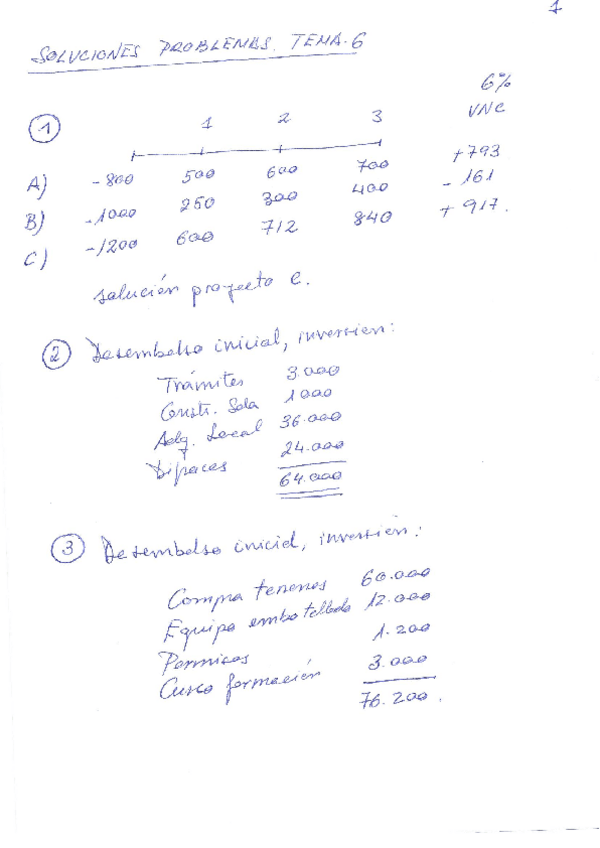 1
SOLUCIONES PROBLEMAS. TEMA-6
6%
① 1 2 3 VNC
A) -800 500 600 700 +793
B) -1000 250 300 400 -161
C) -1200 600 712 840 +917.
solución proyecto C.
② Desembolso inicial, inversión:
Trámites 3.000
Constr. Sda 1000
Adq. Local 36.000
24.000
64.000
③ Desembolso inicial, inversión:
Compra terrenos 60.000
Equipo embotellado 12.000
Permisos 1.200
Curso formación 3.000
76.200.